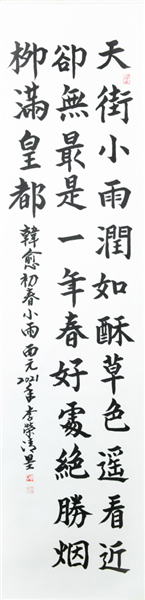 天街小雨潤如酥草色遥看近
卻無最是一年春好處絶勝烟
柳滿皇都
韓愈初春小雨 西元2021年 李榮清書